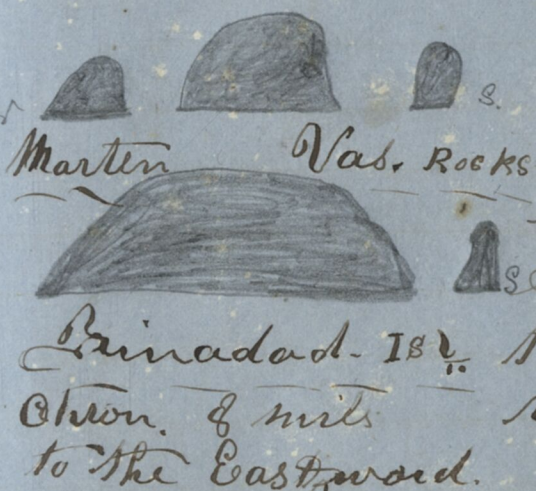 S.
Marten Vas. Rocks
S
Brinadad. Isl.
Chron. 8 mils
to the Eastward.